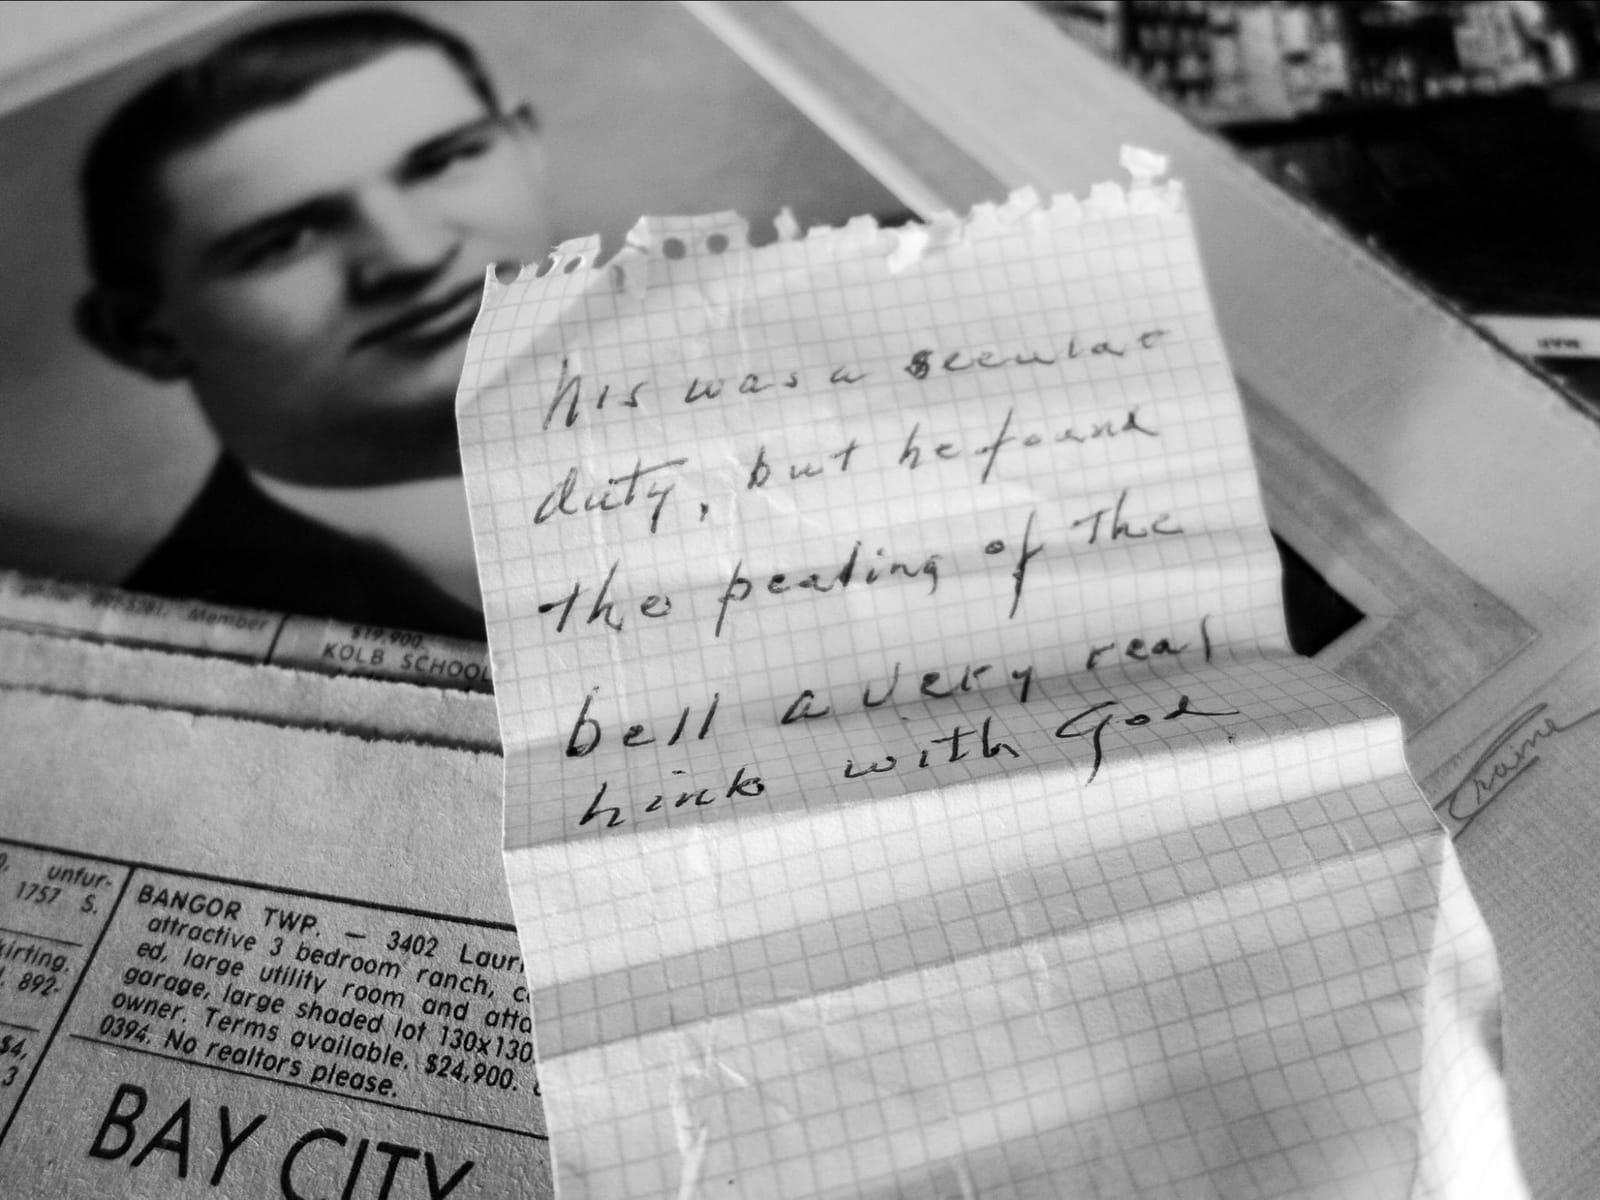 his was a secular
duty, but he found
the pealing of the
bell a very real
link with God.
Member
$19,900.
KOLB SCHOOL
unfur-
1757 S.
892-
$4,
3
BANGOR TWP. — 3402 Laur
attractive 3 bedroom ranch, c
ed, large utility room and atta
garage, large shaded lot 130x130.
owner. Terms available. $24,900.
0394. No realtors please.
BAY CITY
Craine